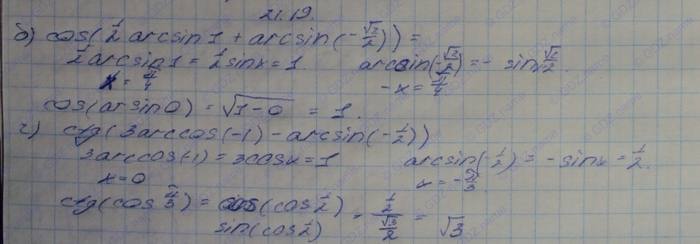 21.19.
б) cos(½ arcsin1 + arcsin(-√2/2)) =
½ arcsin1 = ½ sinx = 1. arcsin(-√2/2) = - sin √2/2.
x = π/4 -x = π/4
cos(arsin0) = √(1-0) = 1.
г) ctg(3arccos(-1) - arcsin(-½))
3arccos(-1) = 3cosx = 1 arcsin(-½) = -sinx = ½.
x = 0 x = -π/3
ctg(cos π/3) = cos(cos½)/sin(cos½) = ½/(√3/2) = √3